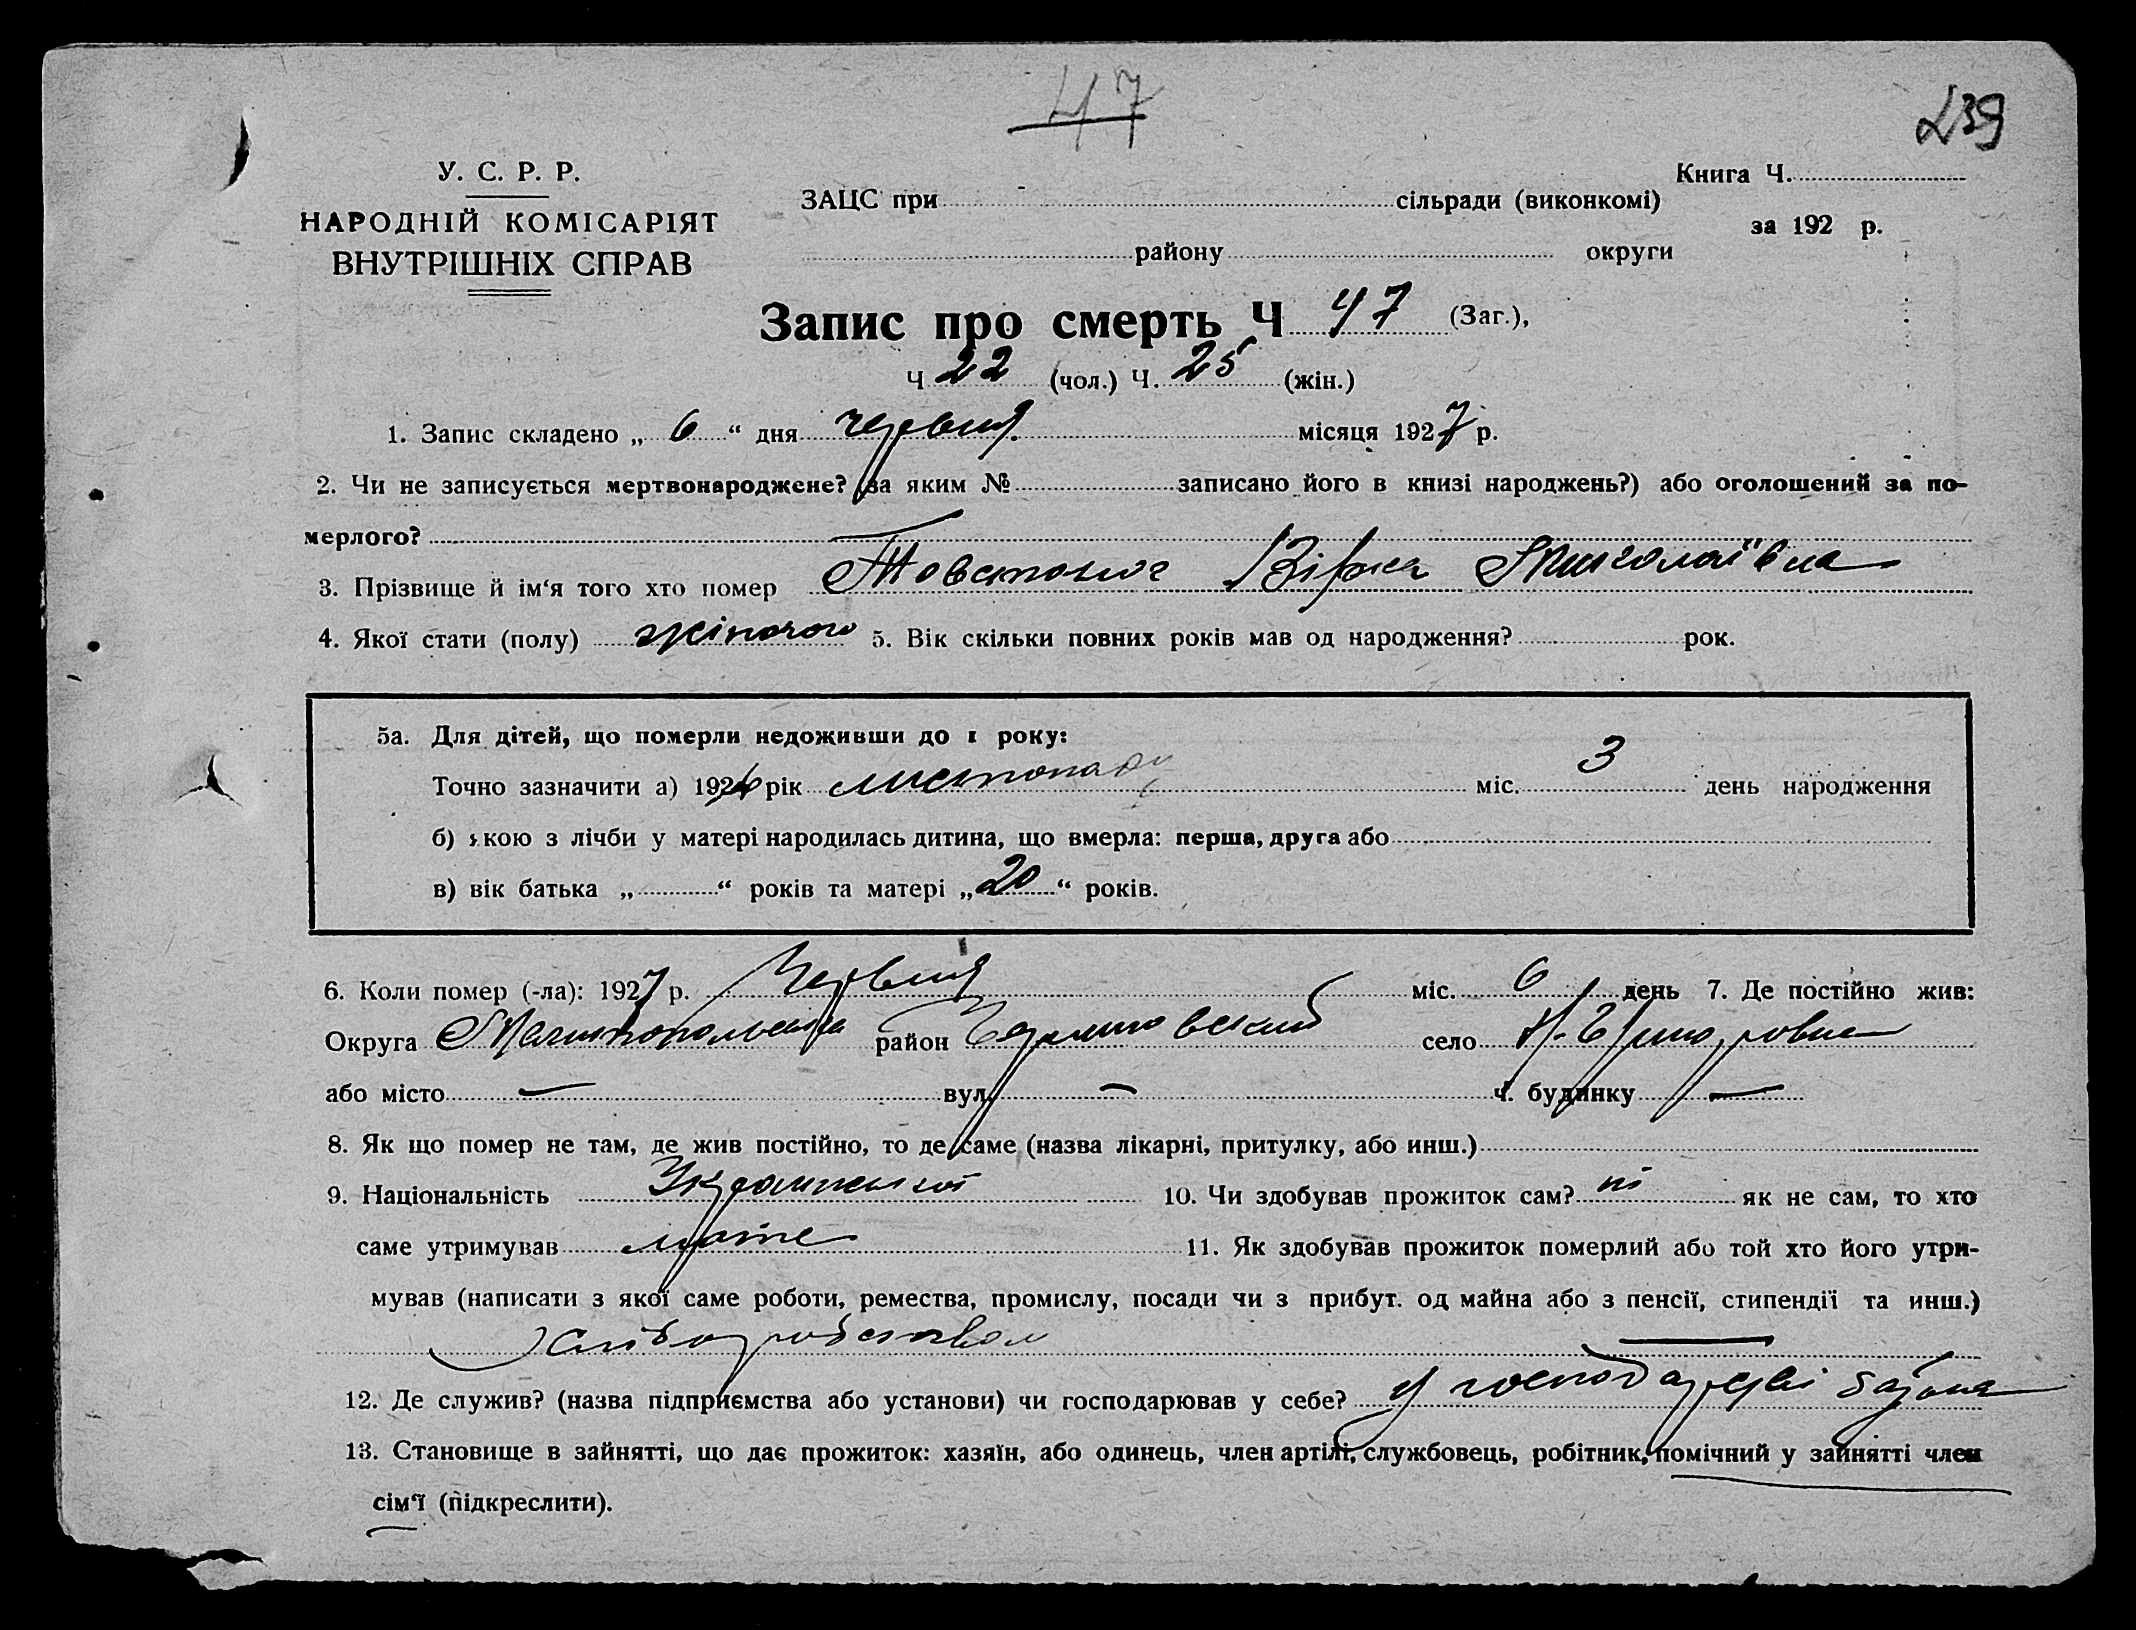 47
239
У. С. Р. Р.
НАРОДНІЙ КОМІСАРІЯТ
ВНУТРІШНІХ СПРАВ
Книга Ч.
ЗАЦС при сільради (виконкомі)
за 192 р.
району округи
Запис про смерть Ч 47 (Заг.),
Ч 22 (чол.) Ч. 25 (жін.)
1. Запис складено „ 6 “ дня червня місяця 1927 р.
2. Чи не записується мертвонароджене? (за яким № записано його в книзі народжень?) або оголошений за по-
мерлого?
3. Прізвище й ім‘я того хто помер Товстоног Вірка Миколаївна
4. Якої стати (полу) жіночого 5. Вік скільки повних років мав од народження? рок.
5а. Для дітей, що померли недоживши до 1 року:
Точно зазначити а) 1926 рік листопаду міс. 3 день народження
б) якою з лічби у матері народилась дитина, що вмерла: перша, друга або
в) вік батька „ “ років та матері „ 20 “ років.
6. Коли помер (-ла): 1927 р. Червня міс. 6 день 7. Де постійно жив:
Округа Мелитопольська район село
або місто — вул. — ч. будинку —
8. Як що помер не там, де жив постійно, то де саме (назва лікарні, притулку, або инш.)
9. Національність Українській 10. Чи здобував прожиток сам? ні як не сам, то хто
саме утримував мати 11. Як здобував прожиток померлий або той хто його утри-
мував (написати з якої саме роботи, ремества, промислу, посади чи з прибут. од майна або з пенсії, стипендії та инш.)
Хліборобством —
12. Де служив? (назва підприємства або установи) чи господарював у себе? У господарсві
13. Становище в зайнятті, що дає прожиток: хазяїн, або одинець, член артілі, службовець, робітник, помічний у зайнятті член
сім‘ї (підкреслити).